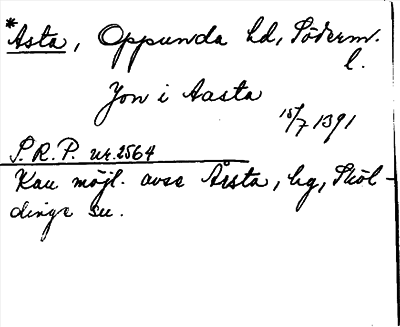 *Asta, Oppunda hd, Söderm.
l.
Jon i Aasta
15/7 1391
S. R. P. nr. 2564
Kan möjl. avse Årsta, hg, Sköl-
dinge sn.